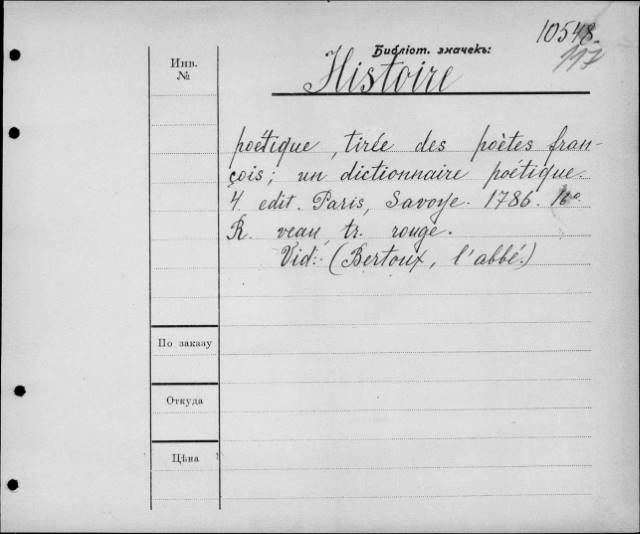 10548.
117
Библіот. значекъ:
Инв.
№
Histoire
poétique, tirée des poètes fran-
çois; un dictionnaire poétique.
4. edit. Paris, Savoye. 1786. 16º.
R. veau, tr. rouge.
Vid: (Bertoux, l'abbé.)
По заказу
Откуда
Цѣна